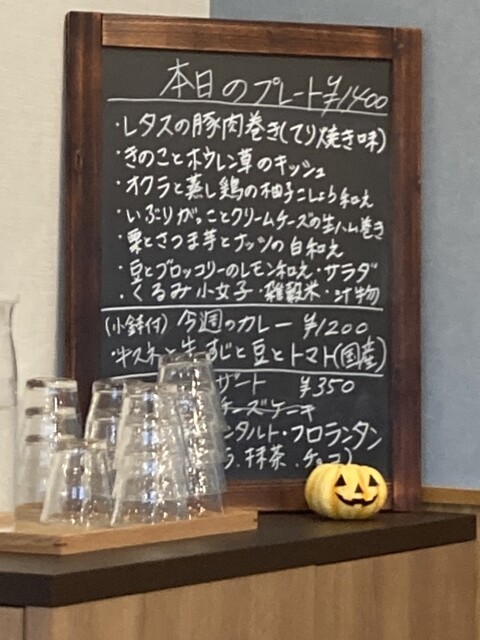 本日のプレート ¥1400
・レタスの豚肉巻き(てり焼き味)
・きのことホウレン草のキッシュ
・オクラと蒸し鶏の柚子こしょう和え
・いぶりがっことクリームチーズの生ハム巻き
・栗とさつま芋とナッツの白和え
・豆とブロッコリーのレモン和え・サラダ
・くるみ小女子・雑穀米・汁物
(小鉢付) 今週のカレー ¥1200
・牛スネと牛すじと豆とトマト(国産)
ザート ¥350
チーズケーキ
ンタルト・フロランタン
抹茶、チョコ)